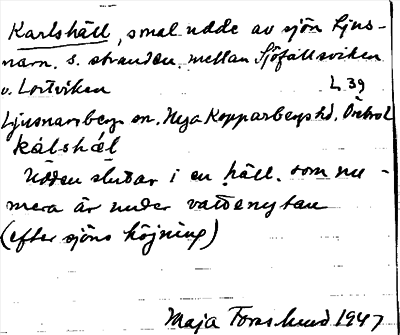 Karlshäll, smal udde av sjön Ljus-
narn, s. stranden, mellan Sjöfallsviken
o. Lortviken L 39
Ljusnarsberg sn. Nya Kopparbergs hd. Örebro l
kálshál
Udden slutar i en häll, som nu-
mera är under vattenytan
(efter sjöns höjning)
Maja Forslund 1947